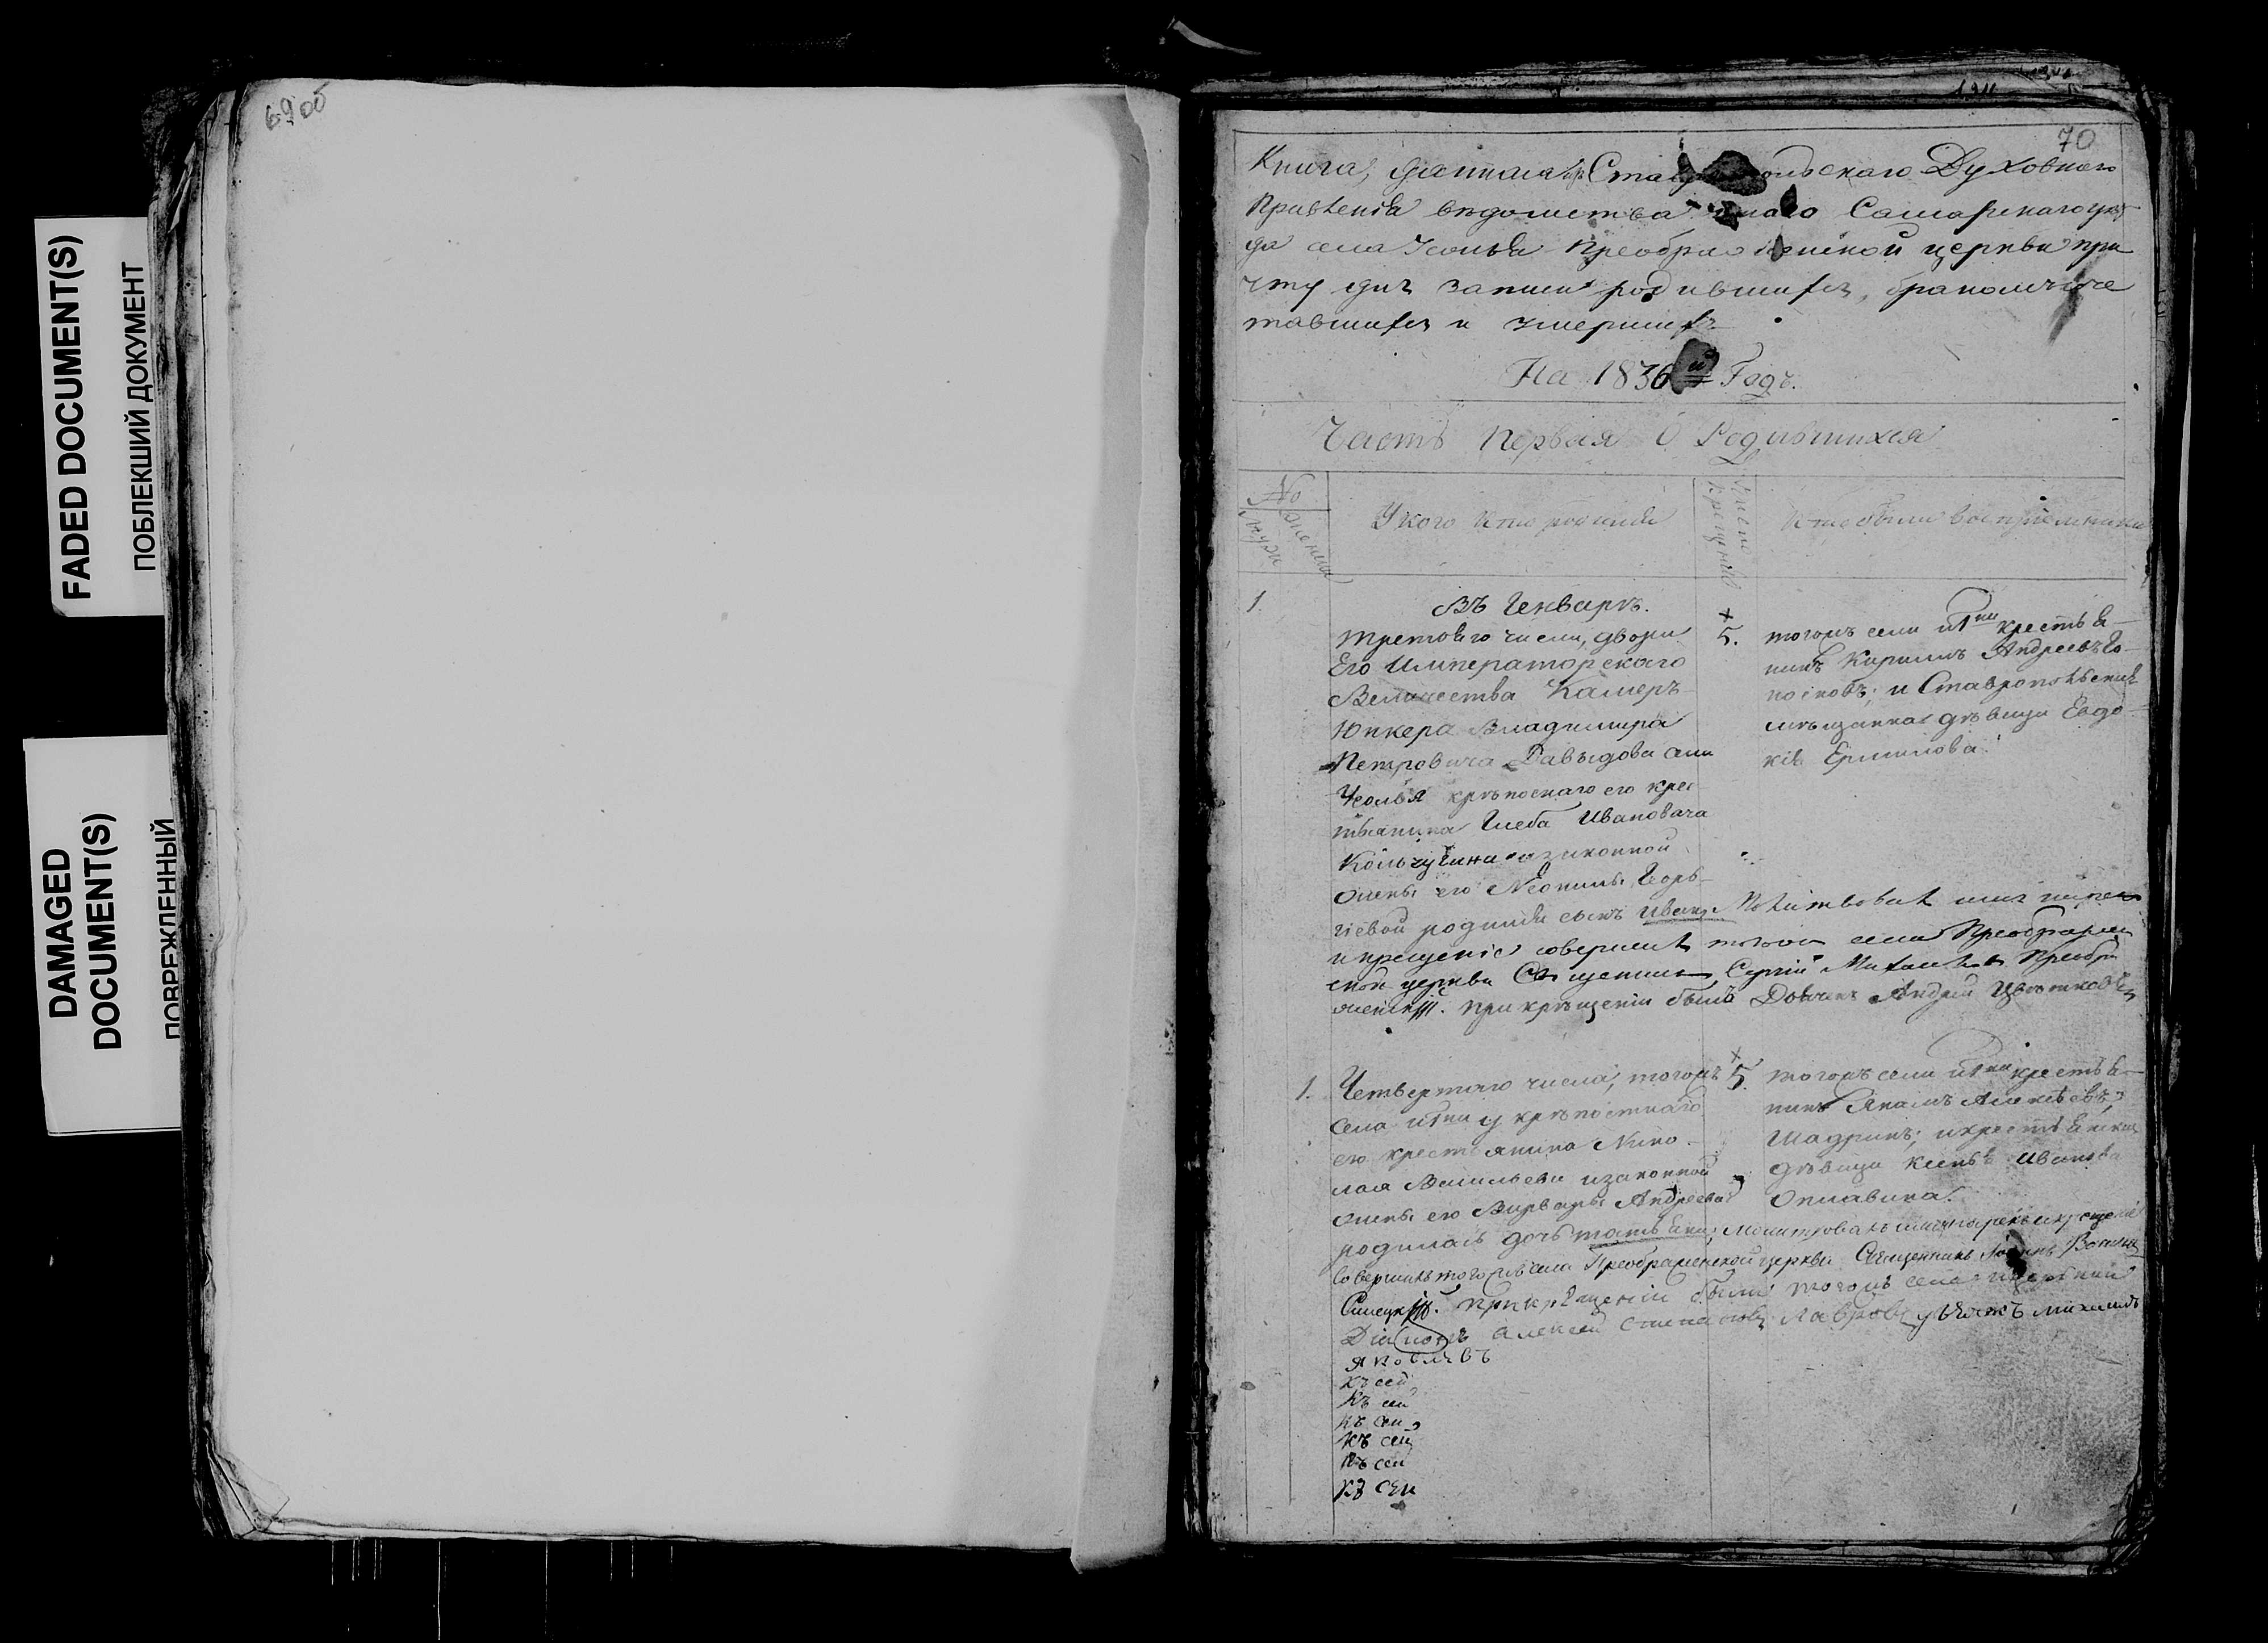 FADED DOCUMENT(S)
ПОБЛЕКШИЙ ДОКУМЕНТ
DAMAGED
DOCUMENT(S)
ПОВРЕЖДЕННЫЙ
69об
70
Книга, данная Ставропольскаго Духовнаго
Правленія вѣдомства онаго Самарскаго уѣз
да села Усолья Преображенской церкви при
чту для записи родившихся, бракомъ соче
тавшихся и умершихъ
На 1836й Годъ.
Часть Первая О Родившихся
№
мужи
женска
У кого кто родился
Число крещенія
Кто были воспріемники
1.
Въ Генварѣ.
третьяго числа, двора
Его Императорскаго
Величества Камеръ-
Юнкера Владимира
Петровича Давыдова села
Усолья крѣпоснаго его крес
тьянина Глеба Ивановича
Кольчугина и законной
жены его Неонилы Георь-
гіевой родился сынъ Иванъ. Молитвовалъ имя нарекъ
и крещеніе совершилъ тогожъ села Преображен
ской церкви Священникъ Сергій Михайловъ Преобра
женскій. При крѣщеніи былъ Дьячекъ Андрей Цвѣтковъ
5.
тогожъ села и Гна крестья-
нинъ Кирилъ Андреевъ
и Ставропольская
мѣщанка дѣвица Евдо-
кія Ермилова
1.
Четвертаго числа, тогожъ
села и Гна у крѣпостнаго
его крестьянина Нико-
лая Васильева и законной
жены его Варвары Андреевой
родилась дочь Татьяна; Молитвовалъ имя нарекъ и крещеніе
совершилъ тогожъ села Преображенской церкви Священникъ Іоаннъ
При крѣщеніи были тогожъ села и церкви
Діаконъ Алексей Степановъ Лавровъ, Дьячекъ Михаилъ
Яковлевъ
5.
тогожъ села и Гна крестья-
нинъ Алексѣевъ
Шадринъ; и крестьянская
дѣвица Ксенья Иванова
Оплавина.
къ сей
къ сей
къ сей
къ сей
къ сей
къ сей